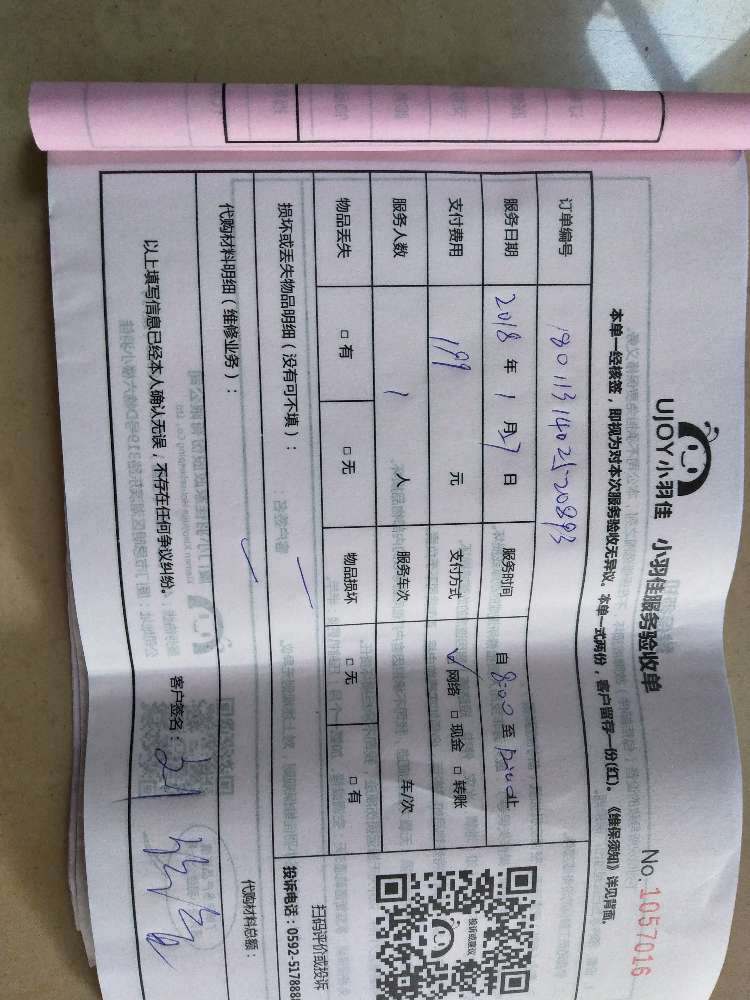 UJOY小羽佳 小羽佳服务验收单 No. 1057016
本单一经核签，即视为对本次服务验收无异议。本单一式两份，客户留存一份(红)。《维保须知》详见背面。
订单编号 180113140252089
服务日期 2018 年 1 月 27 日 服务时间 自 8:00 至 止
支付费用 199 元 支付方式 ☑ 网络 □ 现金 □ 转账
服务人数 1 人 服务车次 车/次
物品丢失 □ 有 □ 无 物品损坏 □ 无 □ 有
损坏或丢失物品明细（没有可不填）：
代购材料明细（维修业务）： 代购材料总额：
以上填写信息已经本人确认无误，不存在任何争议纠纷。 客户签名：
投诉或建议
扫码评价或投诉
投诉电话：0592-517888